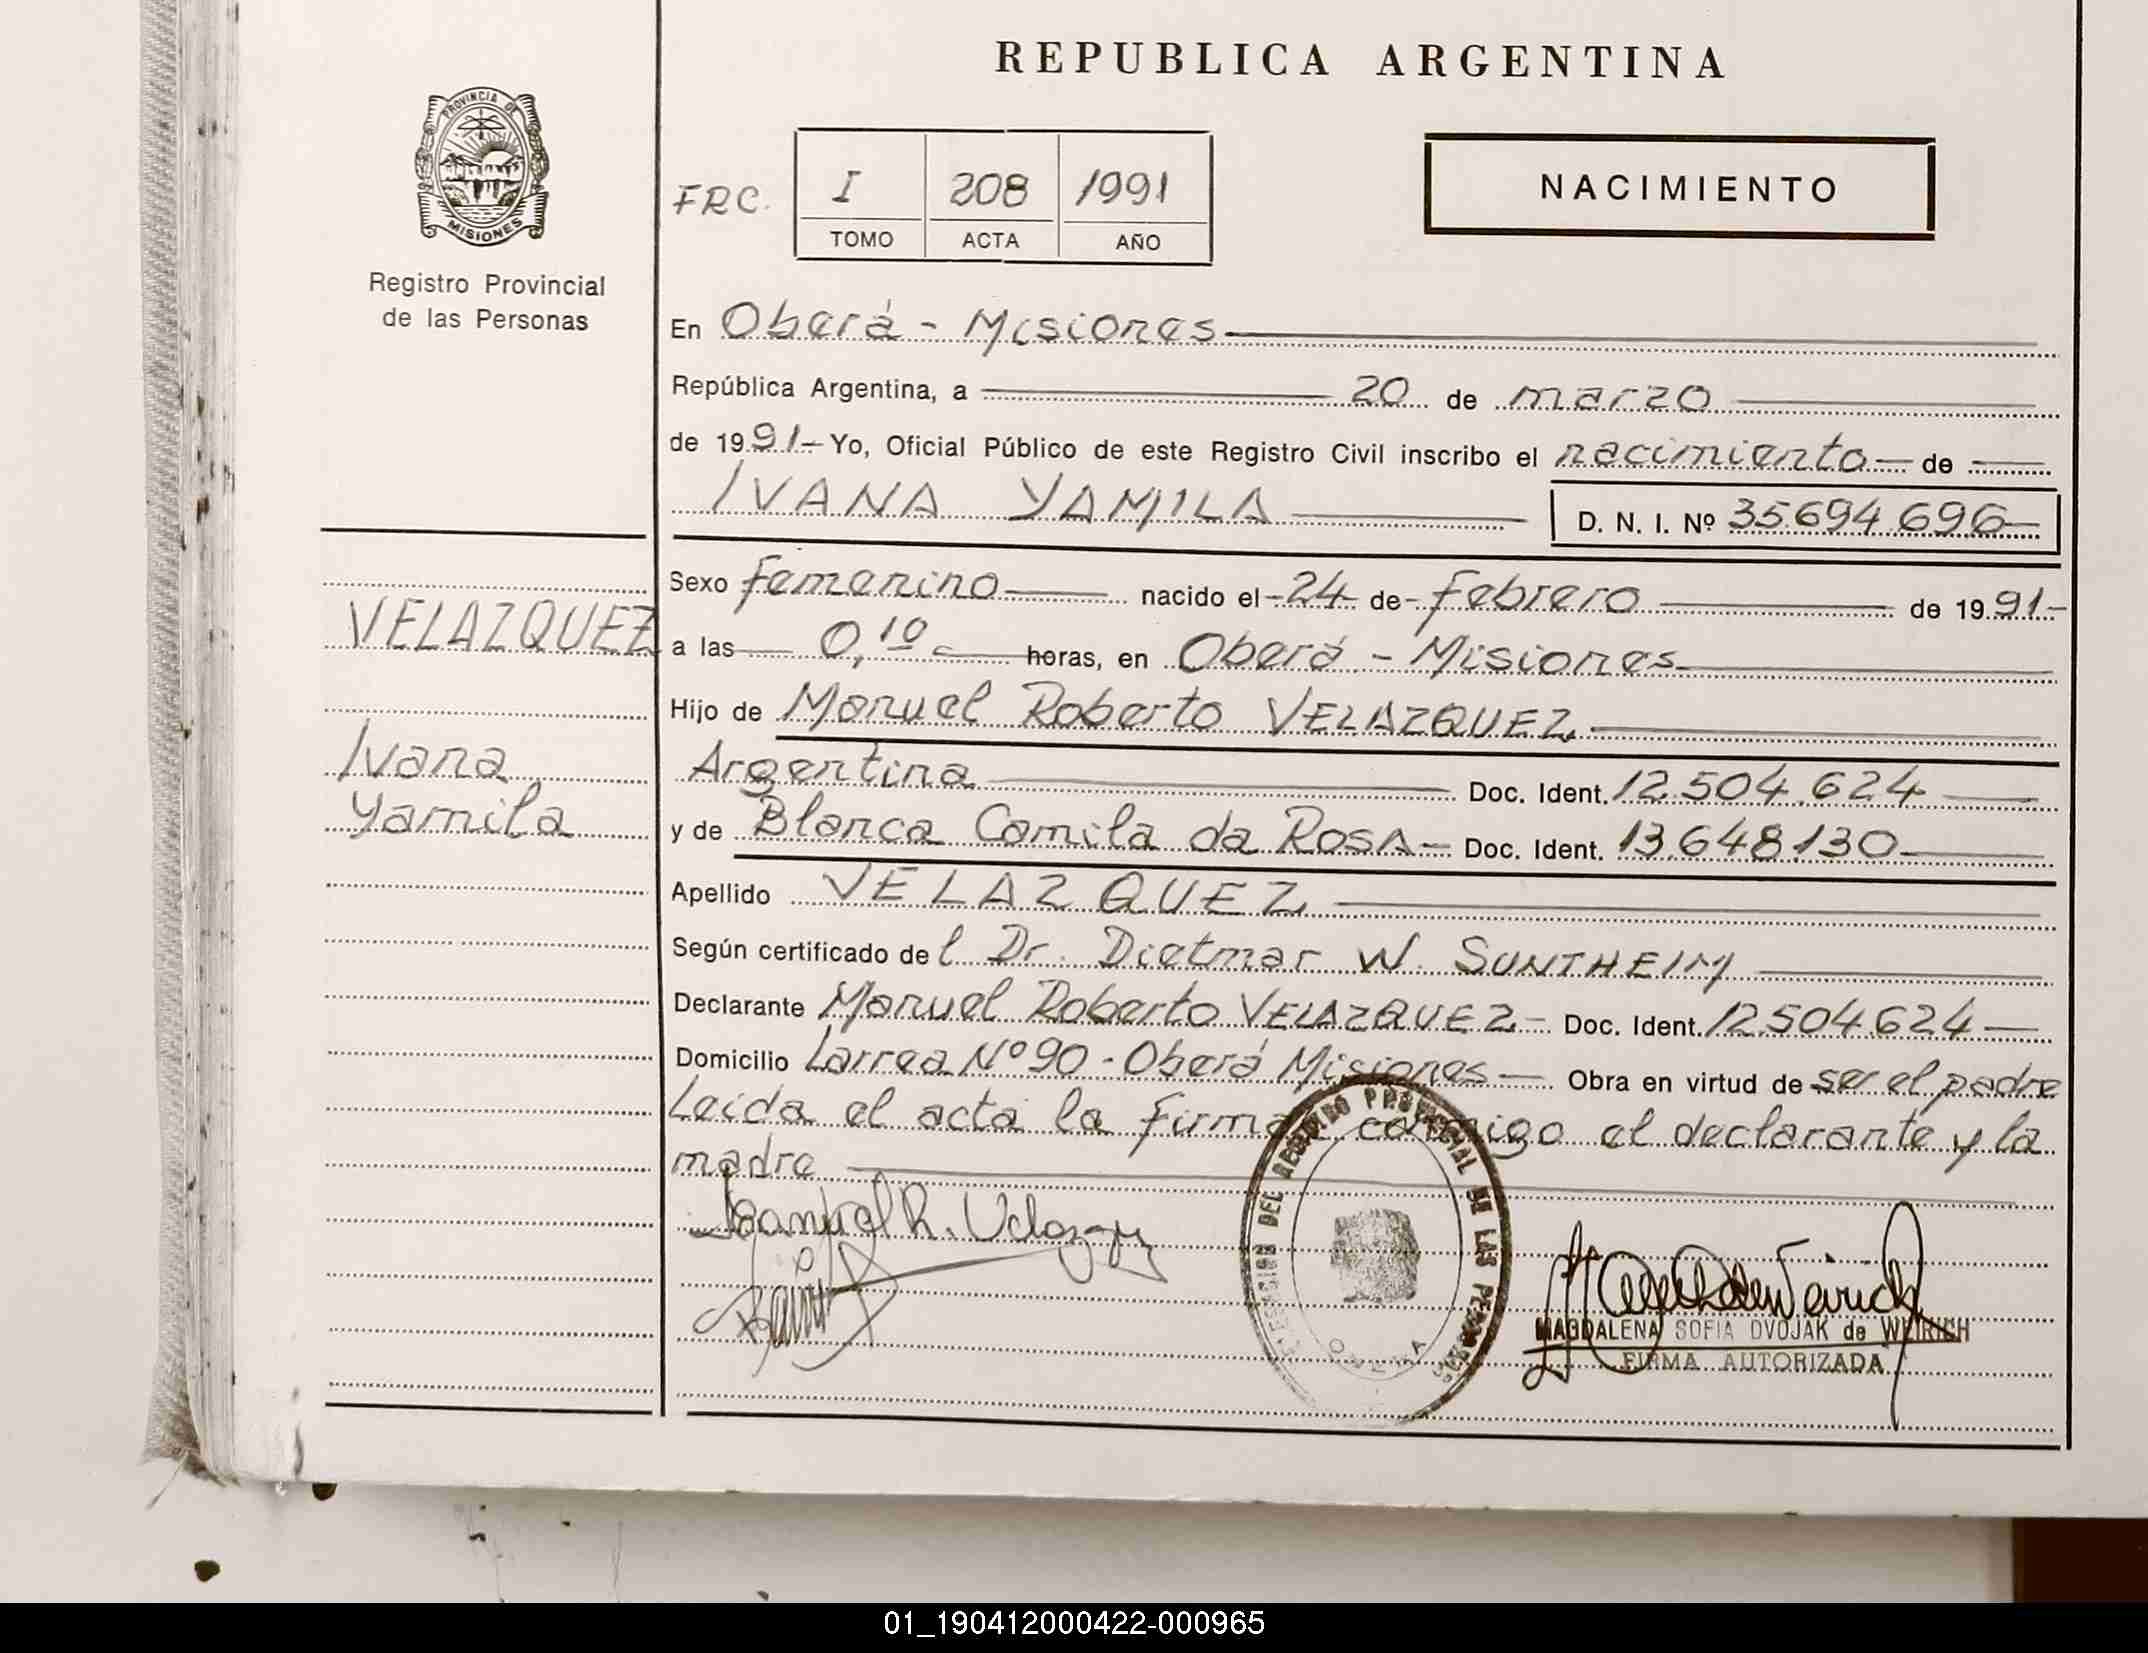 REPUBLICA ARGENTINA
PROVINCIA DE
MISIONES
Registro Provincial
de las Personas
FRC.
I 208 1991
TOMO ACTA AÑO
NACIMIENTO
En Oberá - Misiones
República Argentina, a 20 de marzo
de 1991- Yo, Oficial Público de este Registro Civil inscribo el nacimiento de
IVANA YAMILA
D. N. I. Nº 35.694.696
VELAZQUEZ
Ivana
Yamila
Sexo femenino nacido el 24 de febrero de 1991-
a las 0,10 horas, en Oberá - Misiones
Hijo de Manuel Roberto VELAZQUEZ
Argentina Doc. Ident. 12.504.624
y de Blanca Camila da ROSA - Doc. Ident. 13.648.130
Apellido VELAZQUEZ
Según certificado del Dr. Dietmar W. SUNTHEIM
Declarante Manuel Roberto VELAZQUEZ - Doc. Ident. 12.504.624
Domicilio Larrea Nº 90 - Oberá Misiones - Obra en virtud de ser el padre
Leída el acta la firman conmigo el declarante y la
madre
Manuel R. Velazquez
DEL REGISTRO PROVINCIAL DE LAS PERSONAS
OBERA
MAGDALENA SOFIA DVOJAK de WEIRICH
FIRMA AUTORIZADA
01_190412000422-000965